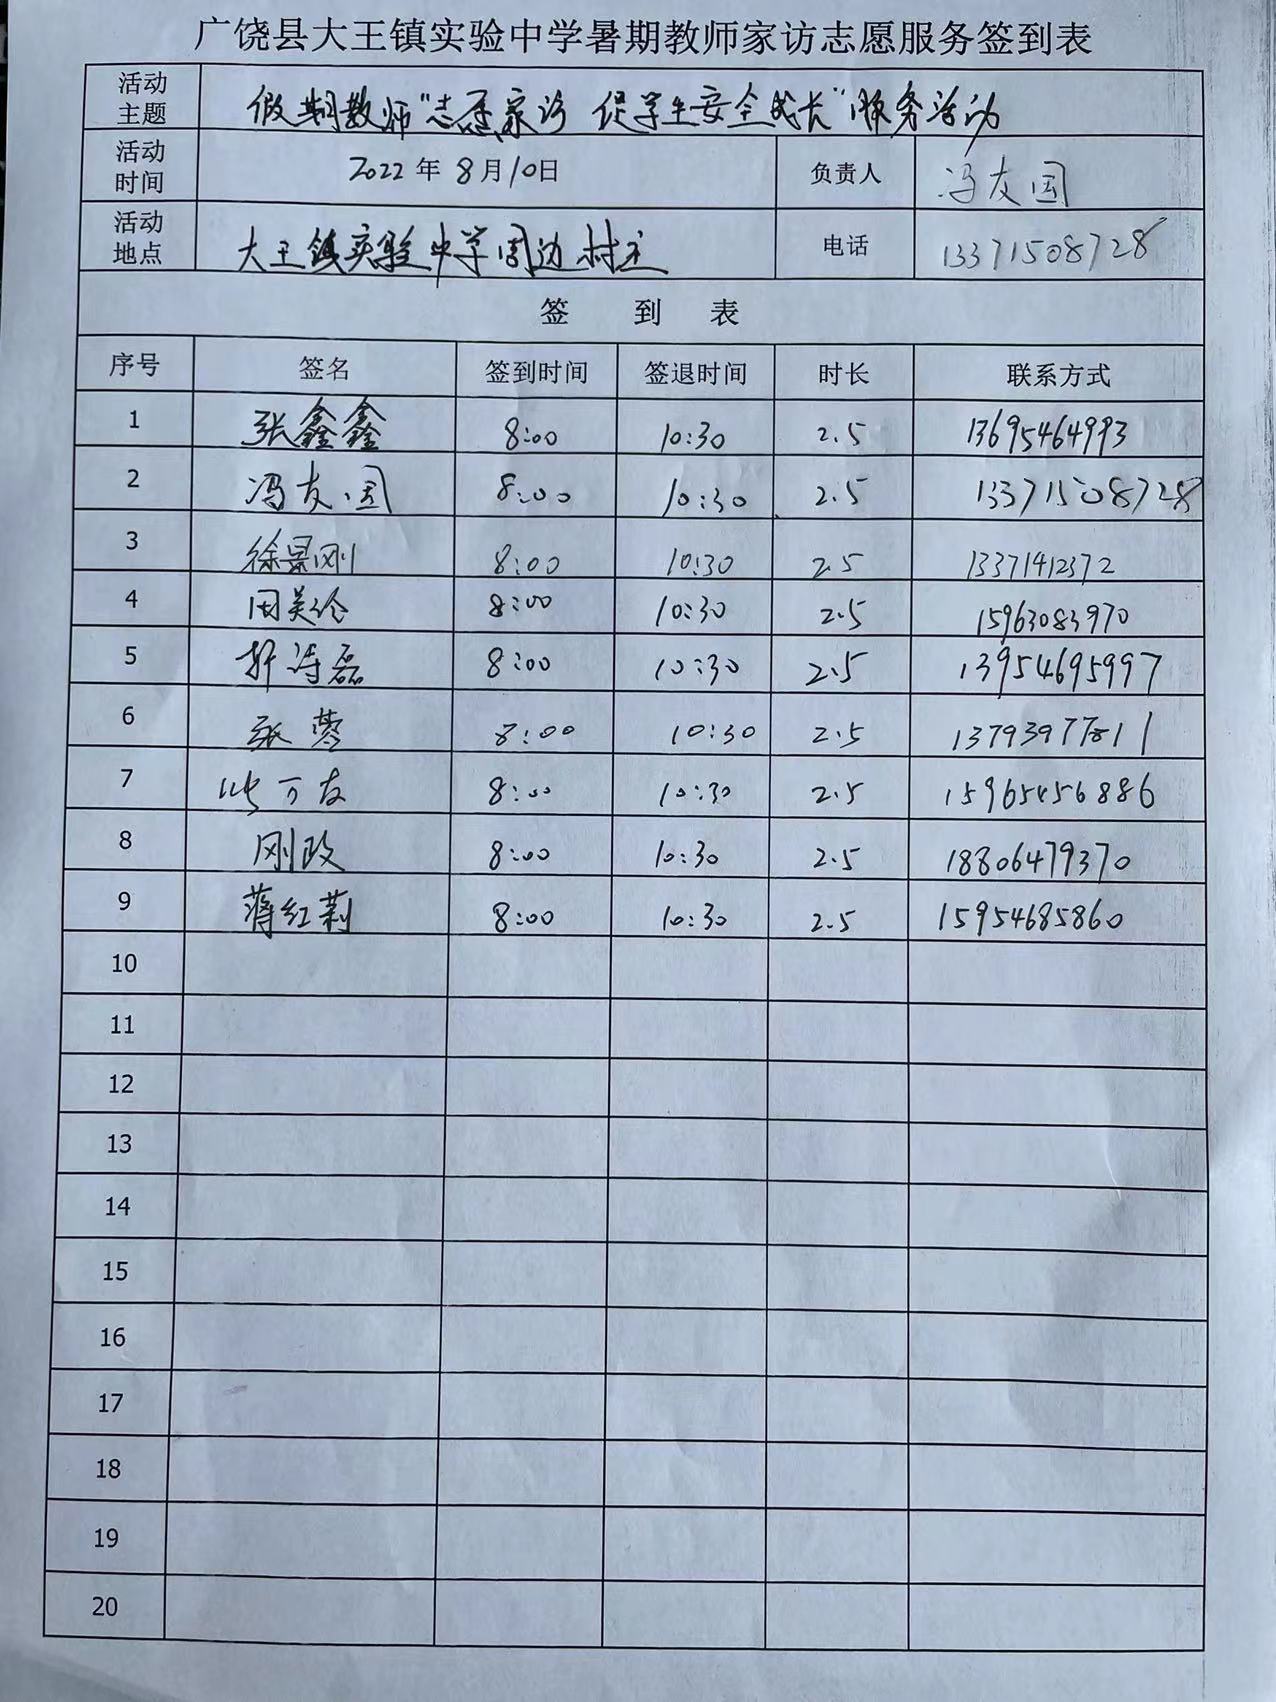 广饶县大王镇实验中学暑期教师家访志愿服务签到表
活动主题 假期教师“志愿家访 促学生安全成长”服务活动
活动时间 2022年8月10日 负责人 冯友国
活动地点 大王镇实验中学周边村庄 电话 13371508728
签 到 表
序号 签名 签到时间 签退时间 时长 联系方式
1 张鑫鑫 8:00 10:30 2.5 13695464993
2 冯友国 8:00 10:30 2.5 13371508728
3 徐景刚 8:00 10:30 2.5 13371412372
4 8:00 10:30 2.5 15963083970
5 8:00 10:30 2.5 13954695997
6 张蓉 8:00 10:30 2.5 13793977811
7 8:00 10:30 2.5 15965456886
8 刚政 8:00 10:30 2.5 18806479370
9 蒋红莉 8:00 10:30 2.5 15954685860
10
11
12
13
14
15
16
17
18
19
20